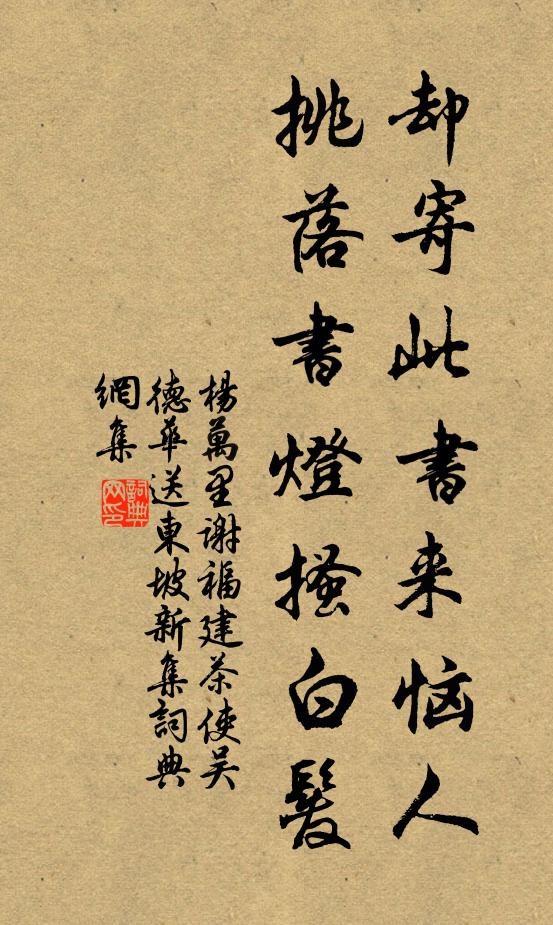 却寄此書来恼人
挑落書燈搔白髮
楊萬里谢福建茶使吴
德華送東坡新集詞典
網集
詞典
网印